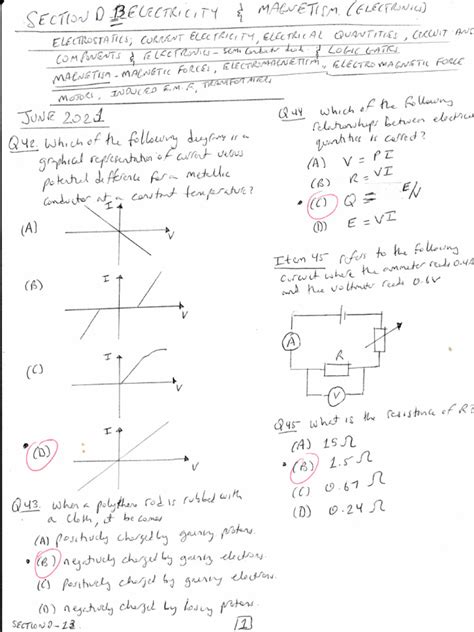 SECTION D BELECTRICITY & MAGNETISM (ELECTRONICS)
ELECTROSTATICS, CURRENT ELECTRICITY, ELECTRICAL QUANTITIES, CIRCUIT AND
COMPONENTS & ELECTRONICS - semiconductor diode & LOGIC GATES
MAGNETISM - MAGNETIC FORCES, ELECTROMAGNETISM, ELECTROMAGNETIC FORCE
MOTORS, INDUCED E.M.F, TRANSFORMERS
JUNE 2021
Q42. Which of the following diagrams is a
graphical representation of current versus
potential difference for a metallic
conductor at a constant temperature?
(A)
I
V
(B)
I
V
(C)
I
V
(D)
I
V
Q43. When a polythene rod is rubbed with
a cloth, it becomes
(A) positively charged by gaining protons.
(B) negatively charged by gaining electrons.
(C) positively charged by gaining electrons.
(D) negatively charged by losing protons.
SECTION D - 23
1
Q44 Which of the following
relationships between electrical
quantities is correct?
(A) V = PI
(B) R = VI
(C) Q = E/V
(D) E = VI
Item 45 refers to the following
circuit where the ammeter reads 0.4A
and the voltmeter reads 0.6V
A
R
V
Q45 What is the resistance of R?
(A) 15 Ω
(B) 1.5 Ω
(C) 0.67 Ω
(D) 0.24 Ω